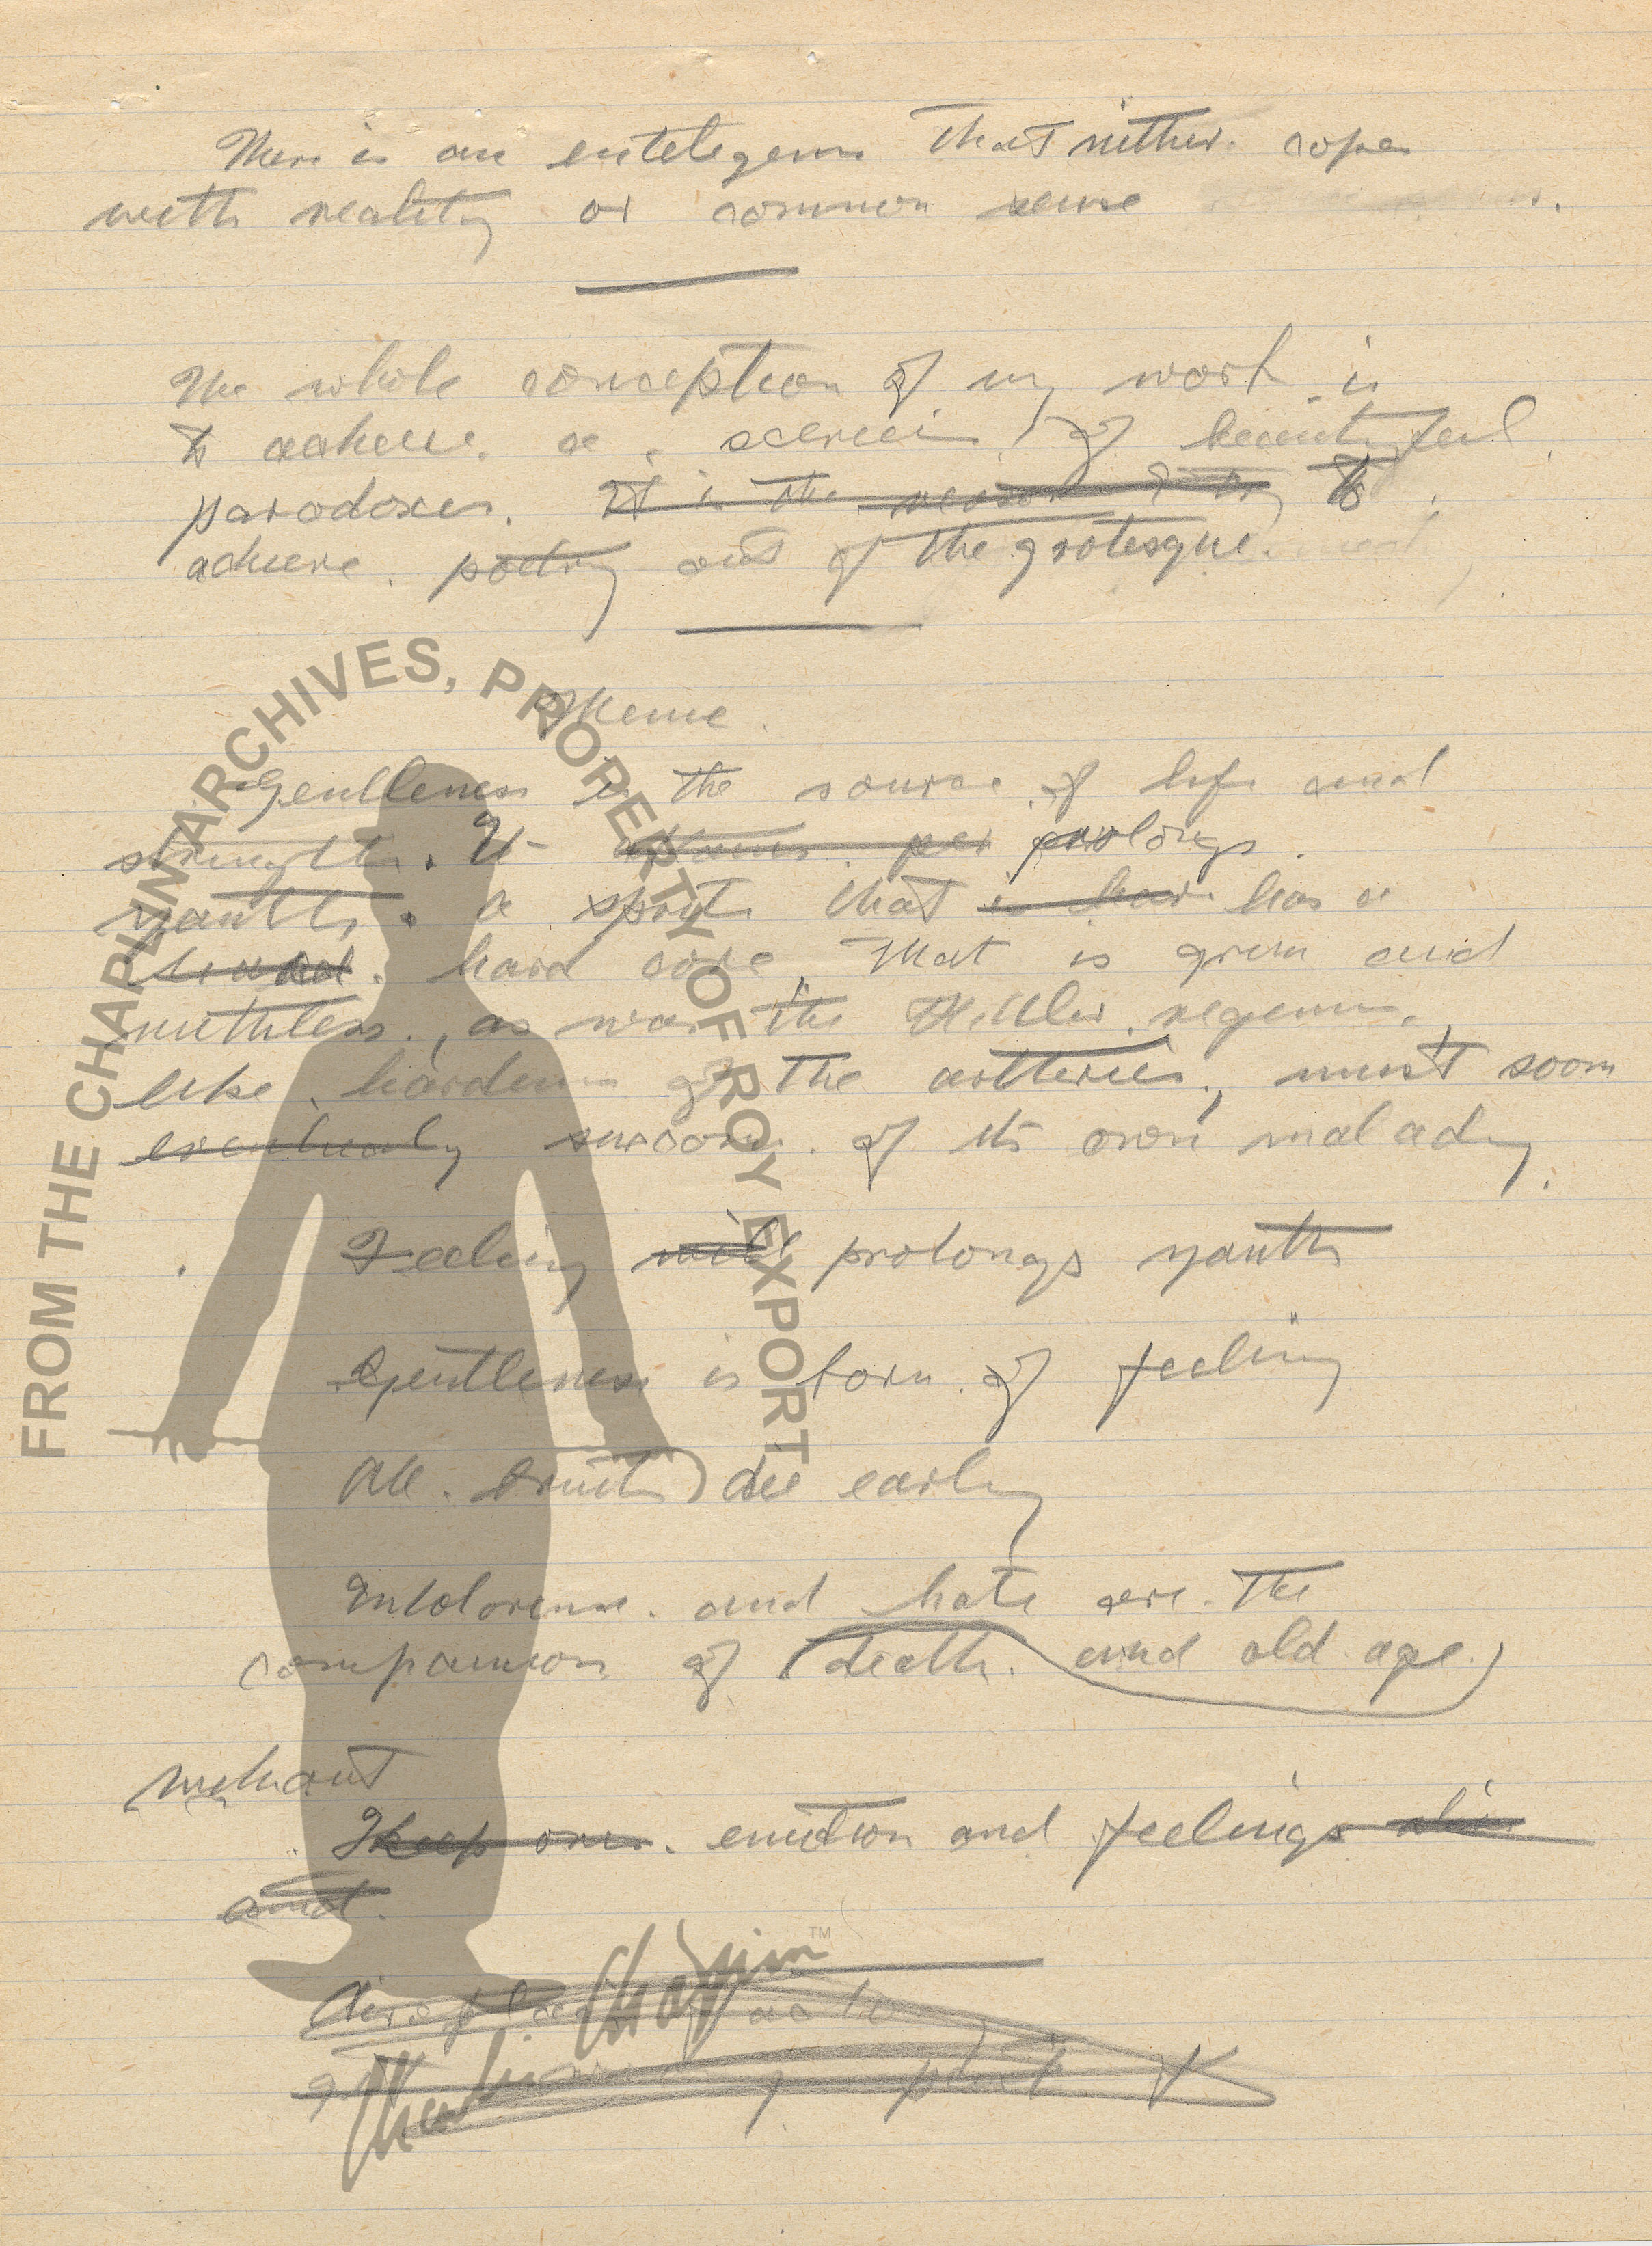 There is an entelegence that nither copes
with reality or common sense
The whole conception of my work is
to achieve a series of beautyful
paradoxes. It is the reason I try to
achieve poetry out of the grotesque.
Theme
Gentleness is the source of life and
strength. It prolongs
youth. a sprit that has a
hard core, that is grim and
ruthless, as was the Hitler regeme,
like hardening of the artteries, must soon
eventually succome of its own malady.
Feeling will prolongs youth
Gentleness is born of feeling
All bruits die early
Intolorence and hate are the
companion of death and old age.
without
Keep ones emotion and feelings
and
FROM THE CHAPLIN ARCHIVES, PROPERTY OF ROY EXPORT
Charlie Chaplin™